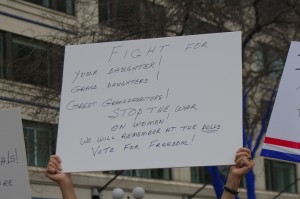 FIGHT FOR
YOUR DAUGHTER!
GRAND DAUGHTERS!
GREAT GRANDDAUGHTERS!
STOP THE WAR
ON WOMEN!
WE WILL REMEMBER AT THE POLLS
VOTE FOR FREEDOM!